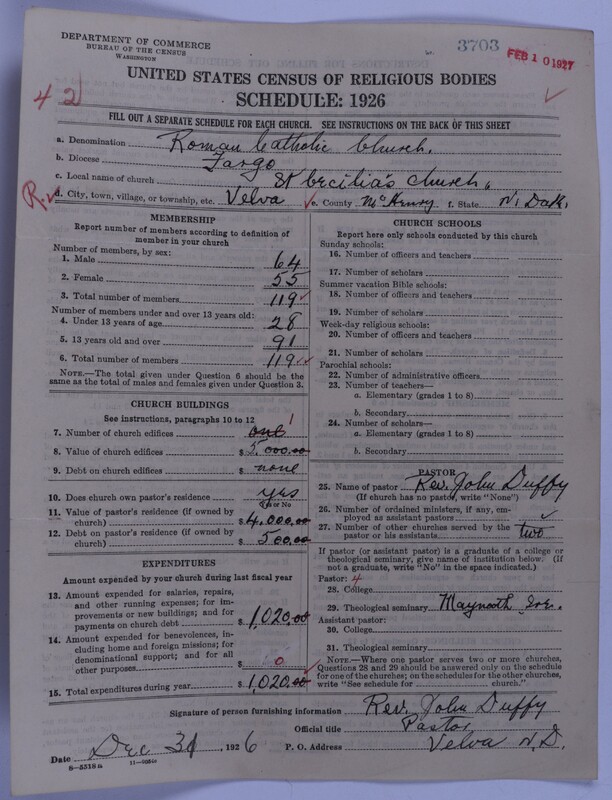 DEPARTMENT OF COMMERCE
BUREAU OF THE CENSUS
WASHINGTON
3703
FEB 10 1927
UNITED STATES CENSUS OF RELIGIOUS BODIES
SCHEDULE: 1926
42
FILL OUT A SEPARATE SCHEDULE FOR EACH CHURCH. SEE INSTRUCTIONS ON THE BACK OF THIS SHEET
a. Denomination Roman Catholic Church.
b. Diocese Fargo
c. Local name of church St Cecilia's Church.
R. d. City, town, village, or township, etc. Velva e. County McHenry f. State N. Dak.
MEMBERSHIP
Report number of members according to definition of member in your church
Number of members, by sex:
1. Male 64
2. Female 55
3. Total number of members 119
Number of members under and over 13 years old:
4. Under 13 years of age 28
5. 13 years old and over 91
6. Total number of members 119
NOTE.—The total given under Question 6 should be
the same as the total of males and females given under Question 3.
CHURCH BUILDINGS
See instructions, paragraphs 10 to 12
7. Number of church edifices one 1
8. Value of church edifices $5.000.00
9. Debt on church edifices $ none
10. Does church own pastor's residence yes
Yes or No
11. Value of pastor's residence (if owned by
church) $4.000.00
12. Debt on pastor's residence (if owned by
church) $500.00
EXPENDITURES
Amount expended by your church during last fiscal year
13. Amount expended for salaries, repairs,
and other running expenses; for im-
provements or new buildings; and for
payments on church debt $1,020.00
14. Amount expended for benevolences,
including home and foreign missions; for
denominational support; and for all
other purposes $ 0
15. Total expenditures during year $1,020.00
CHURCH SCHOOLS
Report here only schools conducted by this church
Sunday schools:
16. Number of officers and teachers
17. Number of scholars
Summer vacation Bible schools:
18. Number of officers and teachers
19. Number of scholars
Week-day religious schools:
20. Number of officers and teachers
21. Number of scholars
Parochial schools:
22. Number of administrative officers
23. Number of teachers—
a. Elementary (grades 1 to 8)
b. Secondary
24. Number of scholars—
a. Elementary (grades 1 to 8)
b. Secondary
PASTOR
25. Name of pastor Rev. John Duffy
(If church has no pastor, write "None")
26. Number of ordained ministers, if any, em-
ployed as assistant pastors
27. Number of other churches served by the
pastor or his assistants two
If pastor (or assistant pastor) is a graduate of a college or
theological seminary, give name of institution below. (If
not a graduate, write "No" in the space indicated.)
Pastor: 4
28. College
29. Theological seminary Maynooth Ire.
Assistant pastor:
30. College
31. Theological seminary
NOTE.—Where one pastor serves two or more churches,
Questions 28 and 29 should be answered only on the schedule
for one of the churches; on the schedules for the other churches,
write "See schedule for church."
Signature of person furnishing information Rev. John Duffy
Official title Pastor
Date Dec 31, 1926 P. O. Address Velva N.D.
8-5318a 11-9054a